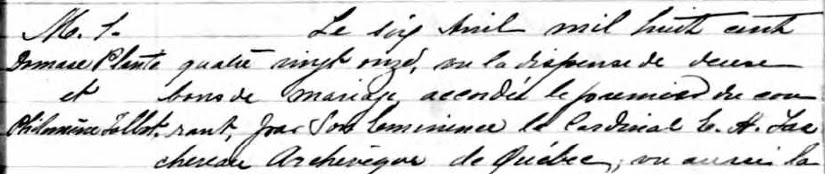 M. 1. Le six Avril mil huit cent
Damase Plante quatre vingt onze, vu la dispense de deux
et bans de mariage accordée le premier du cou
Philomène Talbot. rant, par Son Eminence le Cardinal E. A. Tas
chereau Archevêque de Québec, vu aussi la